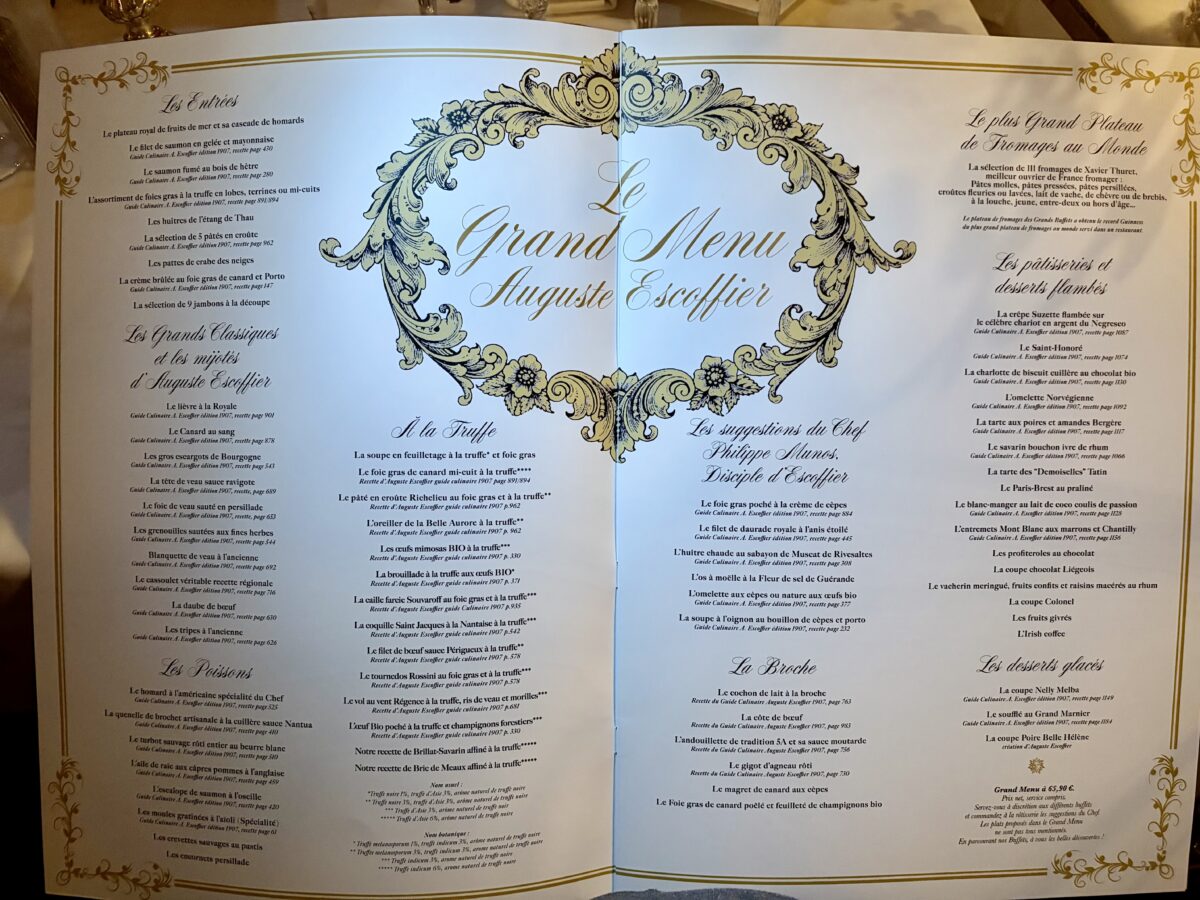 Les Entrées
Le plateau royal de fruits de mer et sa cascade de homards
Le filet de saumon en gelée et mayonnaise
Guide Culinaire A. Escoffier édition 1907, recette page 430
Le saumon fumé au bois de hêtre
Guide Culinaire A. Escoffier édition 1907, recette page 280
L'assortiment de foies gras à la truffe en lobes, terrines ou mi-cuits
Guide Culinaire A. Escoffier édition 1907, recette page 891/894
Les huîtres de l'étang de Thau
La sélection de 5 pâtés en croûte
Guide Culinaire A. Escoffier édition 1907, recette page 962
Les pattes de crabe des neiges
La crème brûlée au foie gras de canard et Porto
Guide Culinaire A. Escoffier édition 1907, recette page 147
La sélection de 9 jambons à la découpe
Les Grands Classiques
et les mijotés
d'Auguste Escoffier
Le lièvre à la Royale
Guide Culinaire A. Escoffier édition 1907, recette page 901
Le Canard au sang
Guide Culinaire A. Escoffier édition 1907, recette page 878
Les gros escargots de Bourgogne
Guide Culinaire A. Escoffier édition 1907, recette page 543
La tête de veau sauce ravigote
Guide Culinaire A. Escoffier édition 1907, recette page 689
Le foie de veau sauté en persillade
Guide Culinaire A. Escoffier édition 1907, recette page 653
Les grenouilles sautées aux fines herbes
Guide Culinaire A. Escoffier édition 1907, recette page 544
Blanquette de veau à l'ancienne
Guide Culinaire A. Escoffier édition 1907, recette page 692
Le cassoulet véritable recette régionale
Guide Culinaire A. Escoffier édition 1907, recette page 716
La daube de bœuf
Guide Culinaire A. Escoffier édition 1907, recette page 630
Les tripes à l'ancienne
Guide Culinaire A. Escoffier édition 1907, recette page 626
Les Poissons
Le homard à l'américaine spécialité du Chef
Guide Culinaire A. Escoffier édition 1907, recette page 525
La quenelle de brochet artisanale à la cuillère sauce Nantua
Guide Culinaire A. Escoffier édition 1907, recette page 410
Le turbot sauvage rôti entier au beurre blanc
Guide Culinaire A. Escoffier édition 1907, recette page 510
L'aile de raie aux câpres pommes à l'anglaise
Guide Culinaire A. Escoffier édition 1907, recette page 459
L'escalope de saumon à l'oseille
Guide Culinaire A. Escoffier édition 1907, recette page 420
Les moules gratinées à l'aïoli (Spécialité)
Guide Culinaire A. Escoffier édition 1907, recette page 61
Les crevettes sauvages au pastis
Les couteaux persillade
Le
Grand Menu
Auguste Escoffier
À la Truffe
La soupe en feuilletage à la truffe* et foie gras
Le foie gras de canard mi-cuit à la truffe****
Recette d'Auguste Escoffier guide culinaire 1907 page 891/894
Le pâté en croûte Richelieu au foie gras et à la truffe**
Recette d'Auguste Escoffier guide culinaire 1907 p.962
L'oreiller de la Belle Aurore à la truffe**
Recette d'Auguste Escoffier guide culinaire 1907 p. 962
Les œufs mimosas BIO à la truffe***
Recette d'Auguste Escoffier guide culinaire 1907 p. 330
La brouillade à la truffe aux œufs BIO*
Recette d'Auguste Escoffier guide culinaire 1907 p. 371
La caille farcie Souvaroff au foie gras et à la truffe***
Recette d'Auguste Escoffier guide culinaire 1907 p.935
La coquille Saint Jacques à la Nantaise à la truffe***
Recette d'Auguste Escoffier guide culinaire 1907 p.542
Le filet de bœuf sauce Périgueux à la truffe**
Recette d'Auguste Escoffier guide culinaire 1907 p. 578
Le tournedos Rossini au foie gras et à la truffe***
Recette d'Auguste Escoffier guide culinaire 1907 p.578
Le vol au vent Régence à la truffe, ris de veau et morilles***
Recette d'Auguste Escoffier guide culinaire 1907 p.681
L'œuf Bio poché à la truffe et champignons forestiers***
Recette d'Auguste Escoffier guide culinaire 1907 p. 330
Notre recette de Brillat-Savarin affiné à la truffe*****
Notre recette de Brie de Meaux affiné à la truffe*****
Nom usuel :
*Truffe noire 1%, truffe d'Asie 3%, arôme naturel de truffe noire
** Truffe noire 3%, truffe d'Asie 3%, arôme naturel de truffe noire
*** Truffe d'Asie 3%, arôme naturel de truffe noire
***** Truffe d'Asie 6%, arôme naturel de truffe noire
Nom botanique :
* Truffe melanosporum 1%, truffe indicum 3%, arôme naturel de truffe noire
** Truffe melanosporum 3%, truffe indicum 3%, arôme naturel de truffe noire
*** Truffe indicum 3%, arome naturel de truffe noire
***** Truffe indicum 6%, arome naturel de truffe noire
Les suggestions du Chef
Philippe Munos,
Disciple d'Escoffier
Le foie gras poché à la crème de cèpes
Guide Culinaire A. Escoffier édition 1907, recette page 884
Le filet de daurade royale à l'anis étoilé
Guide Culinaire A. Escoffier édition 1907, recette page 445
L'huître chaude au sabayon de Muscat de Rivesaltes
Guide Culinaire A. Escoffier édition 1907, recette page 308
L'os à moëlle à la Fleur de sel de Guérande
L'omelette aux cèpes ou nature aux œufs bio
Guide Culinaire A. Escoffier édition 1907, recette page 377
La soupe à l'oignon au bouillon de cèpes et porto
Guide Culinaire A. Escoffier édition 1907, recette page 232
La Broche
Le cochon de lait à la broche
Recette du Guide Culinaire Auguste Escoffier, page 763
La côte de bœuf
Recette du Guide Culinaire Auguste Escoffier, page 993
L'andouillette de tradition 5A et sa sauce moutarde
Recette du Guide Culinaire Auguste Escoffier, page 756
Le gigot d'agneau rôti
Recette du Guide Culinaire Auguste Escoffier, page 730
Le magret de canard aux cèpes
Le Foie gras de canard poêlé et feuilleté de champignons bio
Le plus Grand Plateau
de Fromages au Monde
La sélection de 111 fromages de Xavier Thuret,
meilleur ouvrier de France fromager :
Pâtes molles, pâtes pressées, pâtes persillées,
croûtes fleuries ou lavées, lait de vache, de chèvre ou de brebis,
à la louche, jeune, entre-deux ou hors d'âge...
Le plateau de fromages des Grands Buffets a obtenu le record Guinness
du plus grand plateau de fromages au monde servi dans un restaurant.
Les pâtisseries et
desserts flambés
La crêpe Suzette flambée sur
le célèbre chariot en argent du Negresco
Guide Culinaire A. Escoffier édition 1907, recette page 1087
Le Saint-Honoré
Guide Culinaire A. Escoffier édition 1907, recette page 1074
La charlotte de biscuit cuillère au chocolat bio
Guide Culinaire A. Escoffier édition 1907, recette page 1130
L'omelette Norvégienne
Guide Culinaire A. Escoffier édition 1907, recette page 1092
La tarte aux poires et amandes Bergère
Guide Culinaire A. Escoffier édition 1907, recette page 1117
Le savarin bouchon ivre de rhum
Guide Culinaire A. Escoffier édition 1907, recette page 1066
La tarte des "Demoiselles" Tatin
Le Paris-Brest au praliné
Le blanc-manger au lait de coco coulis de passion
Guide Culinaire A. Escoffier édition 1907, recette page 1128
L'entremets Mont Blanc aux marrons et Chantilly
Guide Culinaire A. Escoffier édition 1907, recette page 1156
Les profiteroles au chocolat
La coupe chocolat Liégeois
Le vacherin meringué, fruits confits et raisins macérés au rhum
La coupe Colonel
Les fruits givrés
L'Irish coffee
Les desserts glacés
La coupe Nelly Melba
Guide Culinaire A. Escoffier édition 1907, recette page 1149
Le soufflé au Grand Marnier
Guide Culinaire A. Escoffier édition 1907, recette page 1184
La coupe Poire Belle Hélène
création d'Auguste Escoffier
Grand Menu à 65,90 €.
Prix net, service compris.
Servez-vous à discrétion aux différents buffets
et commandez à la rôtisserie les suggestions du Chef
Les plats proposés dans le Grand Menu
ne sont pas tous mentionnés.
En parcourant nos Buffets, à vous les belles découvertes !